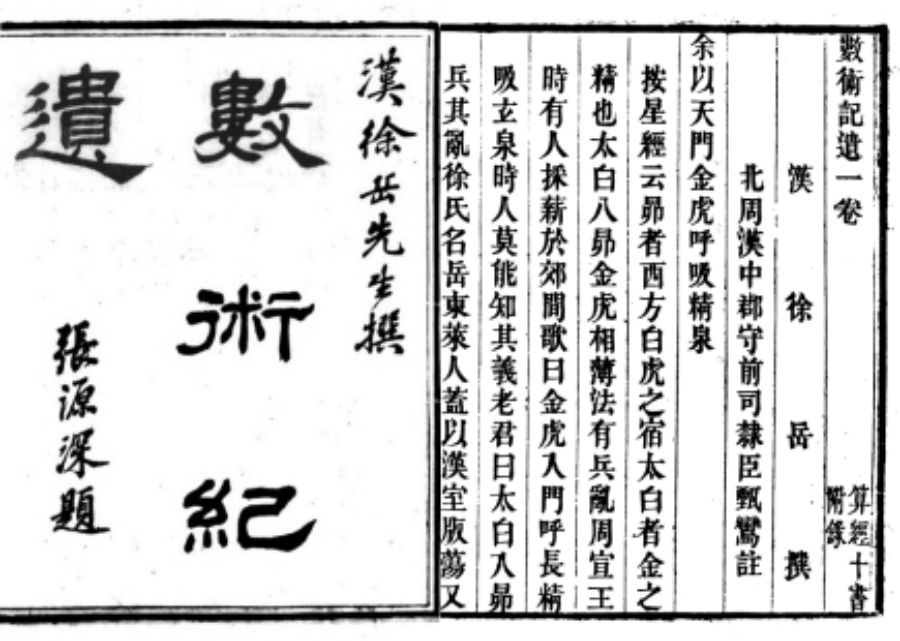 數術記遺一卷
算經十書
附錄
漢徐岳撰
北周漢中郡守前司隸臣甄鸞註
余以天門金虎呼吸精泉
按星經云昴者西方白虎之宿太白者金之
精也太白入昴金虎相薄法有兵亂周宣王
時有人採薪於郊間歌曰金虎入門呼長精
吸玄泉時人莫能知其義老君曰太白入昴
兵其亂徐氏名岳東萊人蓋以漢室版蕩又
漢徐岳先生撰
數術紀
遺
張源深題